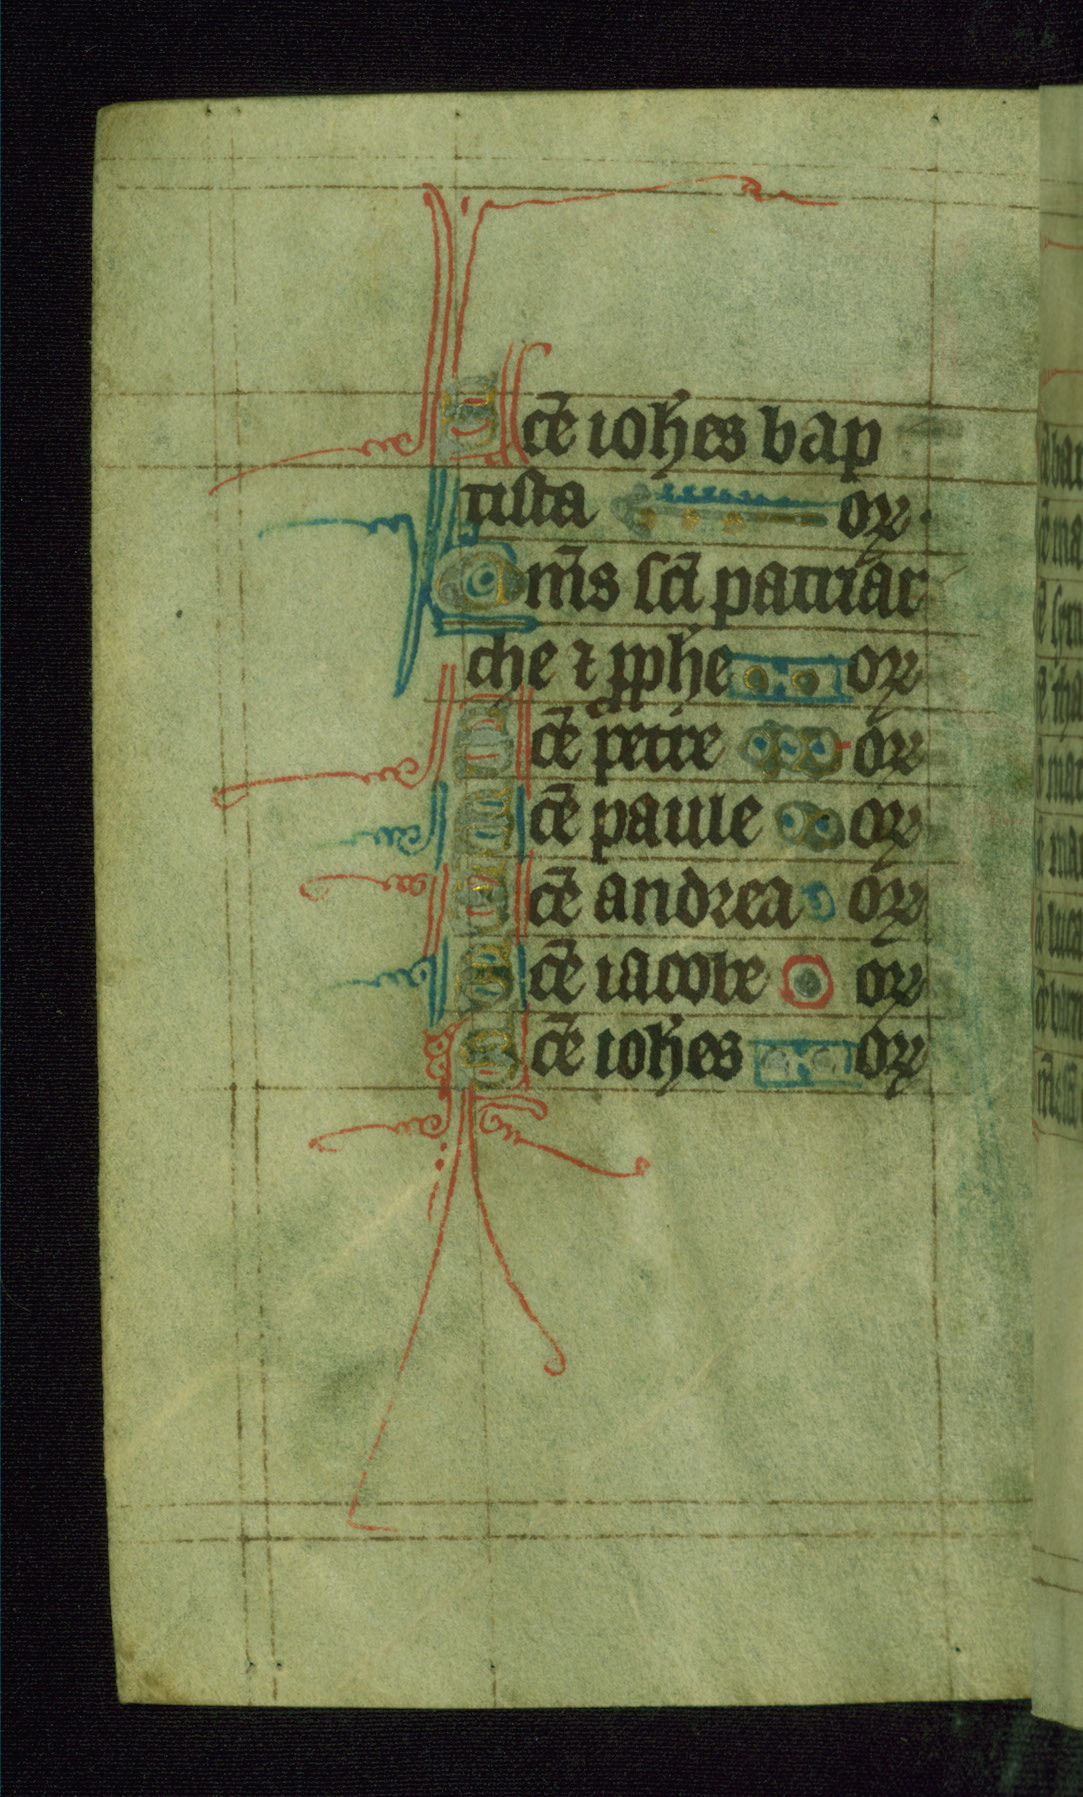 Sc̄e ioh̄es bap
tista or
Om̄s sc̄i patriar
che ⁊ pphe or
Sc̄e petre or
Sc̄e paule or
Sc̄e andrea or
Sc̄e iacobe or
Sc̄e ioh̄es or